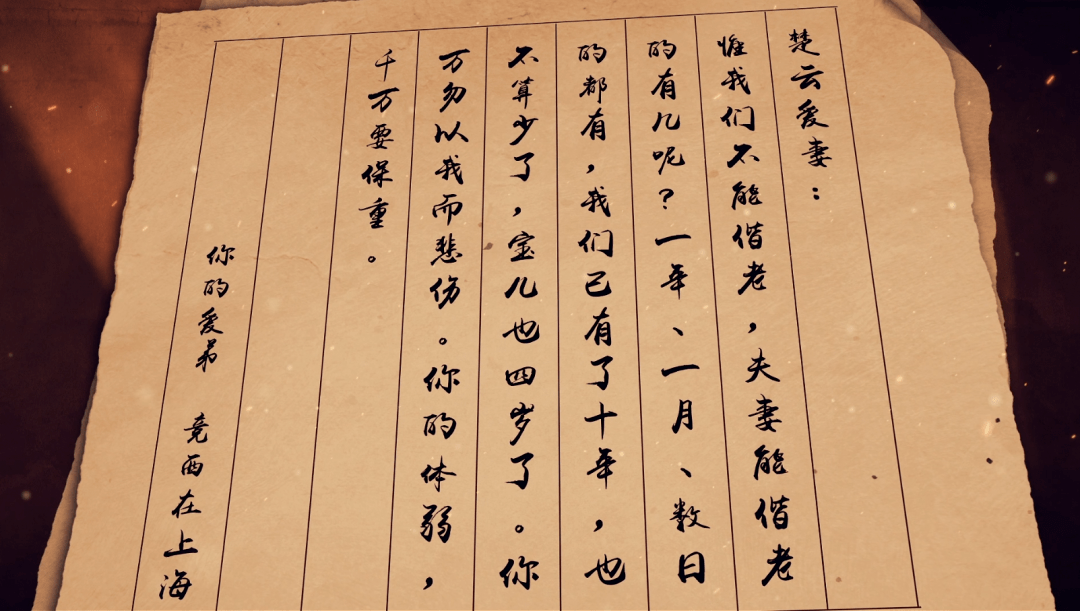 楚云爱妻：
惟我们不能偕老，夫妻能偕老
的有几呢？一年、一月、数日
的都有，我们已有了十年，也
不算少了，宝儿也四岁了。你
万勿以我而悲伤。你的体弱，
千万要保重。
你的爱弟 竞西在上海